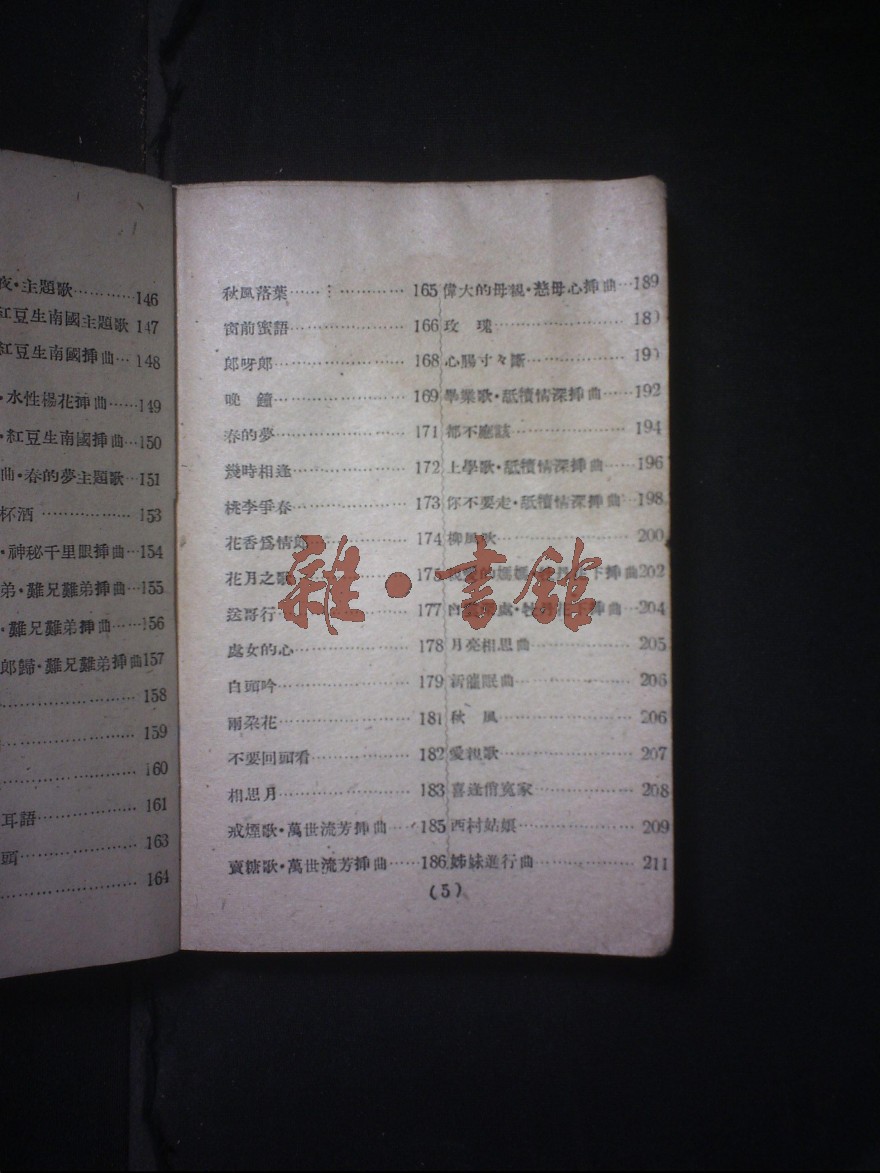 夜·主題歌…………146
紅豆生南國主題歌 147
紅豆生南國揷曲… 148
·水性楊花揷曲……149
·紅豆生南國揷曲…150
曲·春的夢主題歌…151
杯酒 ………………153
·神秘千里眼揷曲…154
弟·難兄難弟揷曲…155
·難兄難弟揷曲……156
郎歸·難兄難弟揷曲157
……………………… 158
……………………… 159
……………………… 160
耳語………………… 161
頭…………………… 163
……………………… 164
秋風落葉……………… 165
窗前蜜語……………… 166
郎呀郎………………… 168
晚 鐘………………… 169
春的夢………………… 171
幾時相逢……………… 172
桃李爭春……………… 173
花香爲情郎…………… 174
花月之歌……………… 175
送哥行………………… 177
處女的心……………… 178
白頭吟………………… 179
兩朶花………………… 181
不要回頭看…………… 182
相思月………………… 183
戒煙歌·萬世流芳揷曲…… 185
賣糖歌·萬世流芳揷曲…… 186
偉大的母親·慈母心揷曲…189
玫 瑰………………… 18
心腸寸々斷…………… 19
畢業歌·舐犢情深揷曲…… 192
都不應該……………… 194
上學歌·舐犢情深揷曲…… 196
你不要走·舐犢情深揷曲… 198
柳風歌………………… 200
的媽媽· 下揷曲202
白 處·牡丹花下揷曲…204
月亮相思曲…………… 205
新催眠曲……………… 206
秋 風………………… 206
愛親歌………………… 207
喜逢俏寃家…………… 208
西村姑娘……………… 209
姊妹進行曲…………… 211
(5)
雜·書館